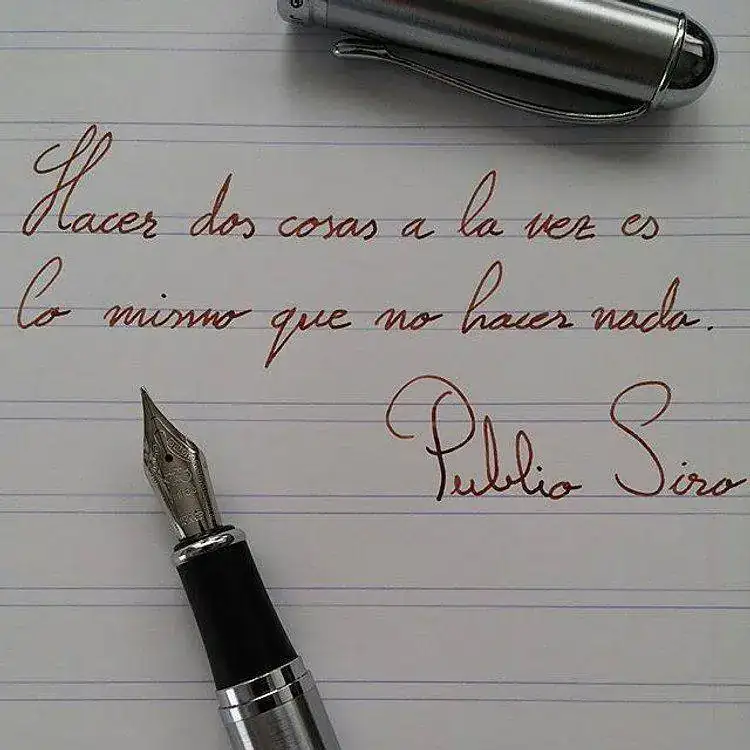 Hacer dos cosas a la vez es
lo mismo que no hacer nada.
Publio Siro